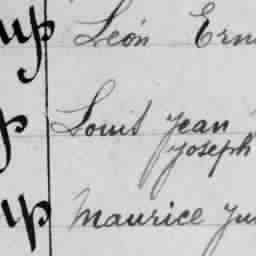 up Léon Ern
p Louis Jean
Joseph
up Maurice Ju